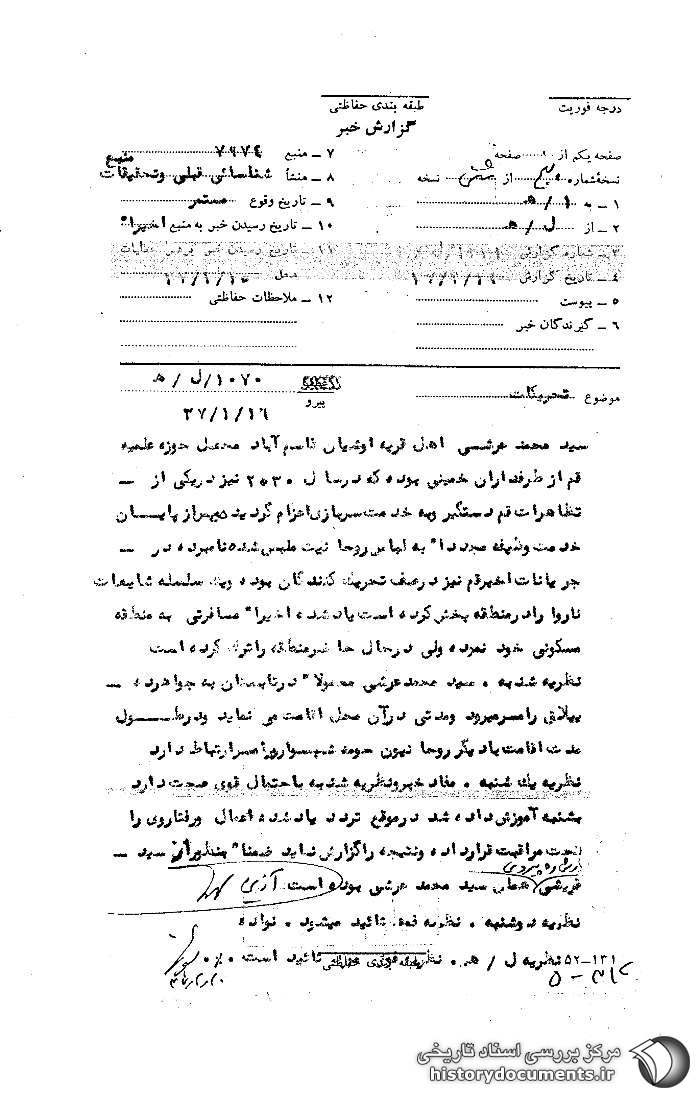 درجه فوریت
طبقه بندی حفاظتی
گزارش خبر
صفحه یکم از صفحه
نسخهٔ شماره از نسخه
۱ ـ به ۱ / ه
۲ ـ از ل / ه
۳ ـ شماره گزارش
۴ ـ تاریخ گزارش
۵ ـ پیوست
۶ ـ گیرندگان خبر
۷ ـ منبع ۷۹۷۴
۸ ـ منشأ شناسائی قبلی وتحقیقات منبع
۹ ـ تاریخ وقوع مستمر
۱۰ ـ تاریخ رسیدن خبر به منبع اخیرا"
۱۱ ـ تاریخ رسیدن خبر برهبر عملیات
محل
۱۲ ـ ملاحظات حفاظتی
موضوع تحریکات
پیرو
۱۰۷۰/ل / ه
۳۷/۱/۱۶
سید محمد عرشی اهل قریه اوشیان قاسم آباد محصل حوزه علمیه
قم از طرفداران خمینی بوده که درسال ۲۵۳۰ نیز دریکی از ـ
تظاهرات قم دستگیر وبه خدمت سربازی اعزام گردیده وپس از پایان
خدمت وظیفه مجددا" به لباس روحانیت ملبس شده نامبرده در ـ
جریانات اخیرقم نیز درصف تحریک کنندگان بوده ویک سلسله شایعات
ناروا رادرمنطقه پخش کرده است یاد شده اخیرا" مسافرتی به منطقه
مسکونی خود نموده ولی درحال حاضر منطقه راترک کرده است
نظریه شنبه . سید محمد عرشی معمولا" درتابستان به جواهرده ـ
ییلاقی رامسرمیرود ومدتی درآن محل اقامت می نماید ودرطـــول
مدت اقامت بادیگر روحانیون حومه شهسوار ورامسرارتباط دارد
نظریه یک شنبه . مفاد خبرونظریه شنبه باحتمال قوی صحت دارد
بشنبه آموزش داده شد درموقع تردد یاد شده اعمال ورفتاروی را
تحت مراقبت قرار داده ونتیجه راگزارش نماید ضمنا" منظور از سید ـ
عرشی همان سید محمد عرشی بوده است
نظریه دوشنبه . نظریه فوق تائید میشود . نواده
۵۲-۱۳۱ نظریه ل / ه . نظریه فوق تائید است ۰/۰
طبقه بندی حفاظتی
مرکز بررسی اسناد تاریخی
historydocuments.ir